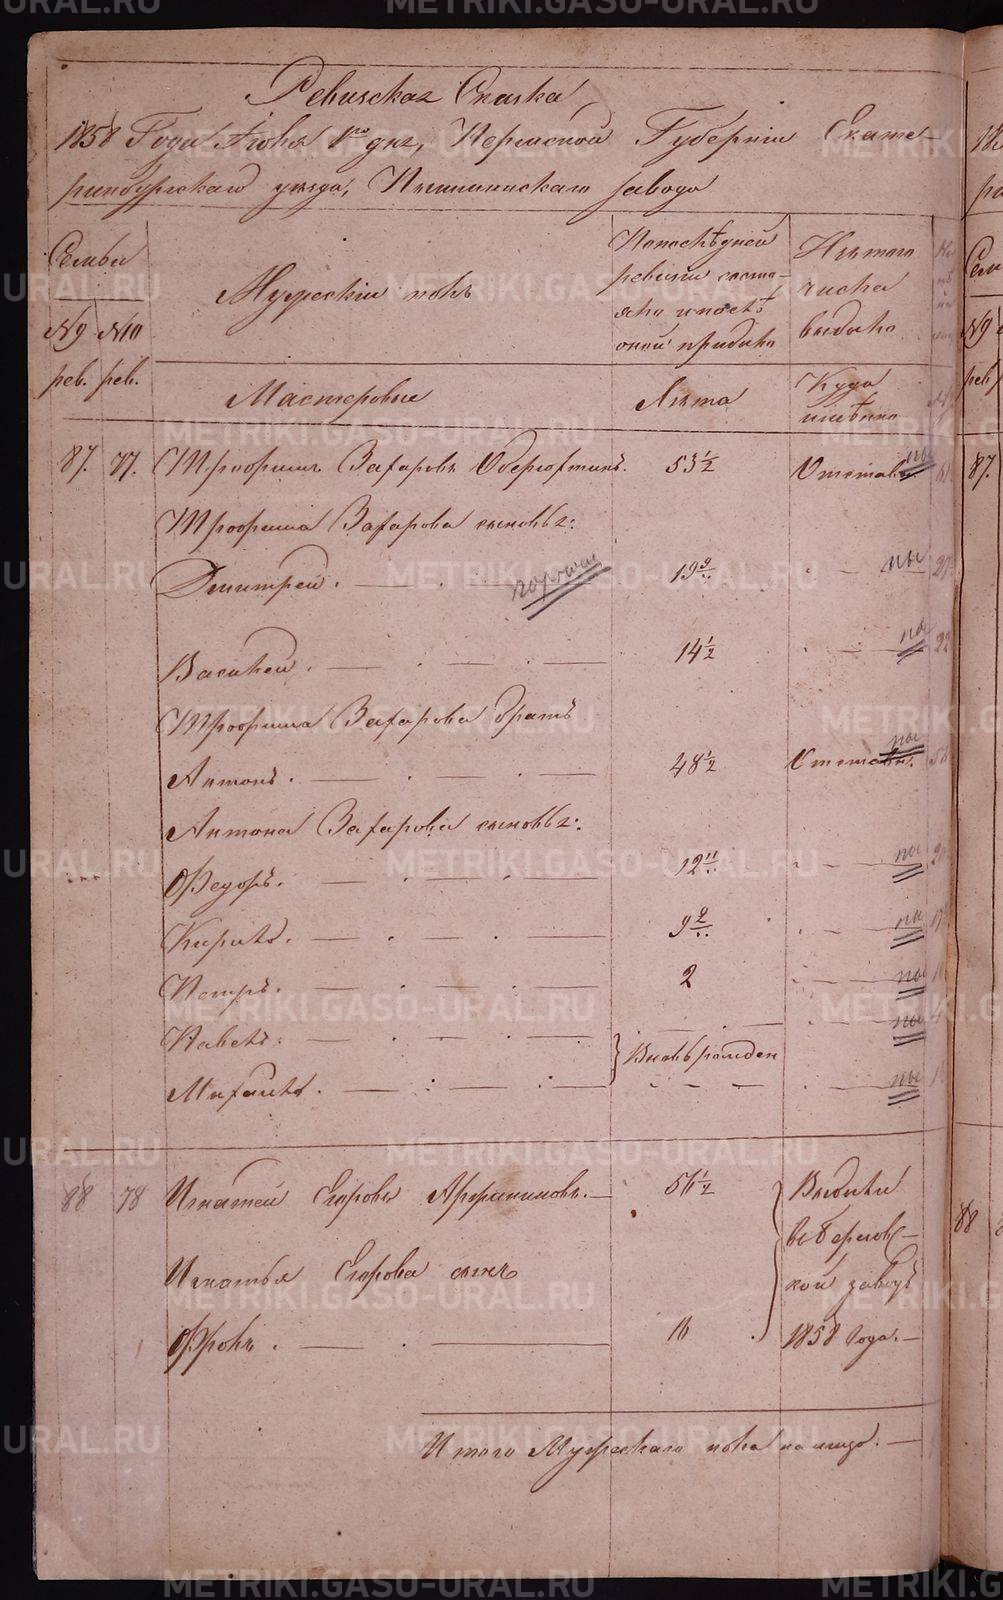 Ревизская Сказка
1858 Года Июня 1го дня, Пермской Губернии Екате-
ринбургскаго уезда, Пышминскаго завода
Семьи
№9 рев.
№10 рев.
Мужеский полъ
По последней
ревизии состо-
яло и после
оной прибыло
Изъ того
числа
выбыло
Мастеровые
Лета
Куда
именно
87. 77. Трофимъ Захаровъ 53 ½
Трофима Захарова сыновья:
Дмитрей. 19 9/..
Василей. 14 ½
Трофима Захарова братъ
Антонъ. 48 ½
Антона Захарова сыновья:
Федоръ. 12 11/..
Кирило. 9 9/..
Петръ. 2
Павелъ. Вновь рожден
Михайло.
88 78 Игнатей Егоровъ 56 ½ Выбыли
въ Березов-
Игнатья Егорова сынъ
кой заводъ
Фролъ. 16 1858 года.
Итого Мужескаго пола на лицо.
METRIKI.GASO-URAL.RU